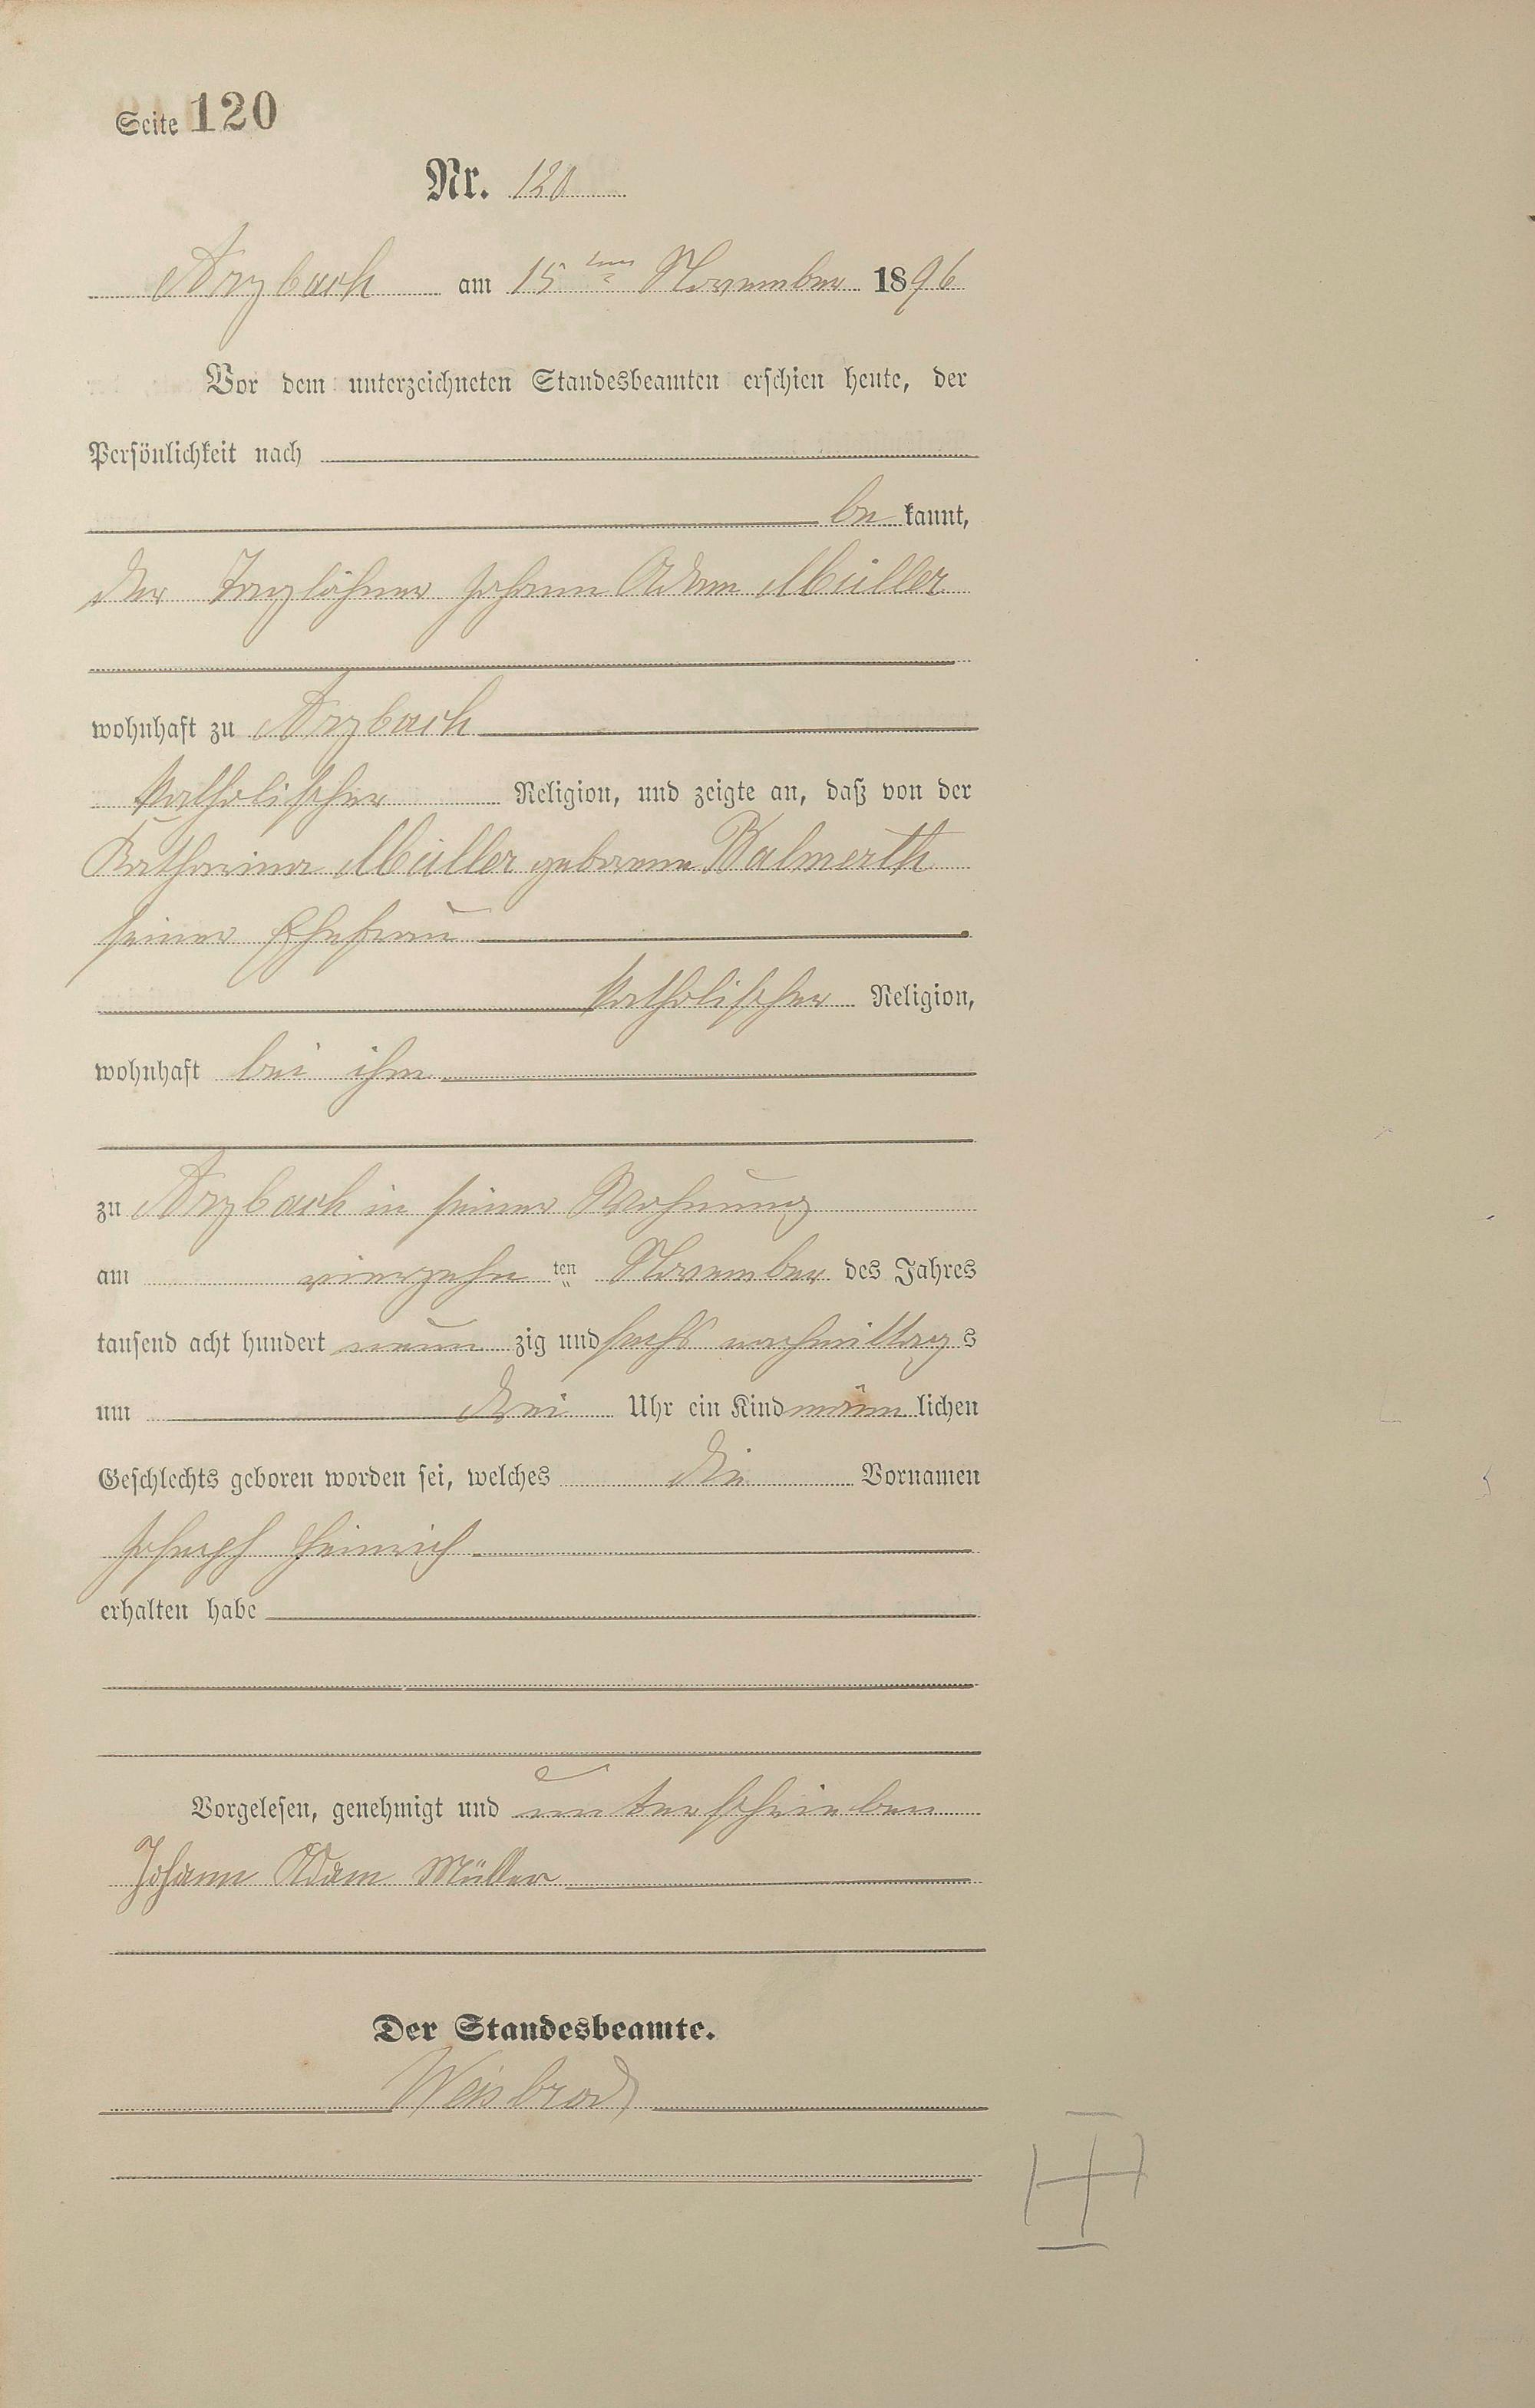 Seite 120
Nr. 120
Arzbach am 15ten November 1896
Vor dem unterzeichneten Standesbeamten erschien heute, der
Persönlichkeit nach
be kannt,
der Taglöhner Johann Adam Müller
wohnhaft zu Arzbach
katholischer Religion, und zeigte an, daß von der
Katharina Müller geborene Balmerth
seiner Ehefrau
katholischer Religion,
wohnhaft bei ihm
zu Arzbach in seiner Wohnung
am vierzehn ten November des Jahres
tausend acht hundert neun zig und sechs nachmittags
um drei Uhr ein Kind männ lichen
Geschlechts geboren worden sei, welches die Vornamen
Joseph Heinrich
erhalten habe
Vorgelesen, genehmigt und unterschrieben
Johann Adam Müller
Der Standesbeamte.
Weisbrod
H